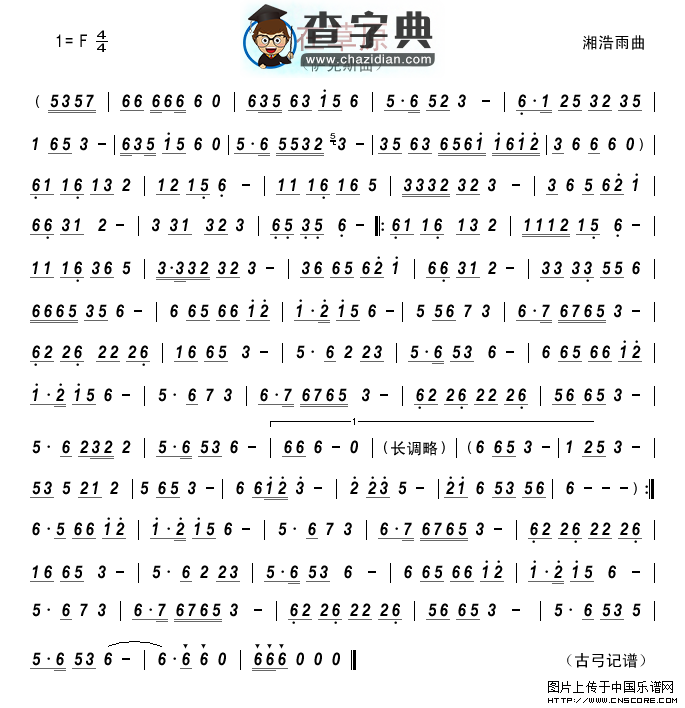 查字典
www.chazidian.com
1= F 4/4
湘浩雨曲
( 5357 | 66 666 6 0 | 635 63 i 5 6 | 5·6 52 3 - | 6·1 25 32 35 |
1 65 3 - | 635 i 5 6 0 | 5·6 5532 5 3 - | 35 63 656i i6i2 | 3 6 6 6 0 ) |
61 16 13 2 | 12 15 6 - | 11 16 16 5 | 3332 32 3 - | 3 6 5 62 i |
66 31 2 - | 3 31 32 3 | 65 35 6 - ‖: 61 16 13 2 | 1112 15 6 - |
11 16 36 5 | 3·332 32 3 - | 36 65 62 i | 66 31 2 - | 33 33 55 6 |
6665 35 6 - | 6 65 66 i2 | i·2 i5 6 - | 5 56 7 3 | 6·7 6765 3 - |
62 26 22 26 | 16 65 3 - | 5· 6 2 23 | 5·6 53 6 - | 6 65 66 i2 |
i·2 i5 6 - | 5· 6 7 3 | 6·7 6765 3 - | 62 26 22 26 | 56 65 3 - |
1
5· 6 232 2 | 5·6 53 6 - | 66 6 - 0 | (长调略) | (6 65 3 - | 1 25 3 - |
53 5 21 2 | 5 65 3 - | 6 6i2 3 - | 2 23 5 - | 2i 6 53 56 | 6 - - - ) :‖
6·5 66 i2 | i·2 i5 6 - | 5· 6 7 3 | 6·7 6765 3 - | 62 26 22 26 |
16 65 3 - | 5· 6 2 23 | 5·6 53 6 - | 6 65 66 i2 | i·2 i5 6 - |
5· 6 7 3 | 6·7 6765 3 - | 62 26 22 26 | 56 65 3 - | 5· 6 232 5 |
5·6 53 6 - | 6·6 6 0 | 666 0 0 0 ‖
(古弓记谱)
图片上传于中国乐谱网
HTTP://WWW.CNSCORE.COM